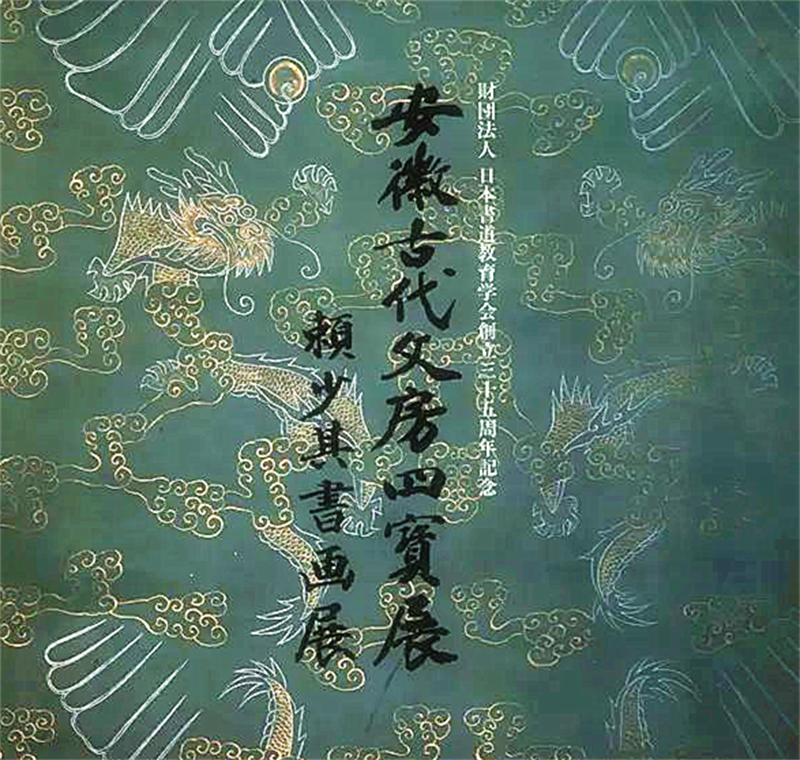 財団法人 日本書道教育学会創立三十五周年記念
安徽古代文房四寳展
賴少其書画展